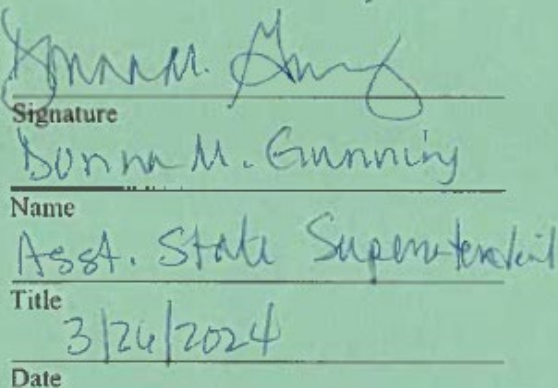 Donna M. Gunning
Signature
Donna M. Gunning
Name
Asst. State Superintendent
Title
3/26/2024
Date